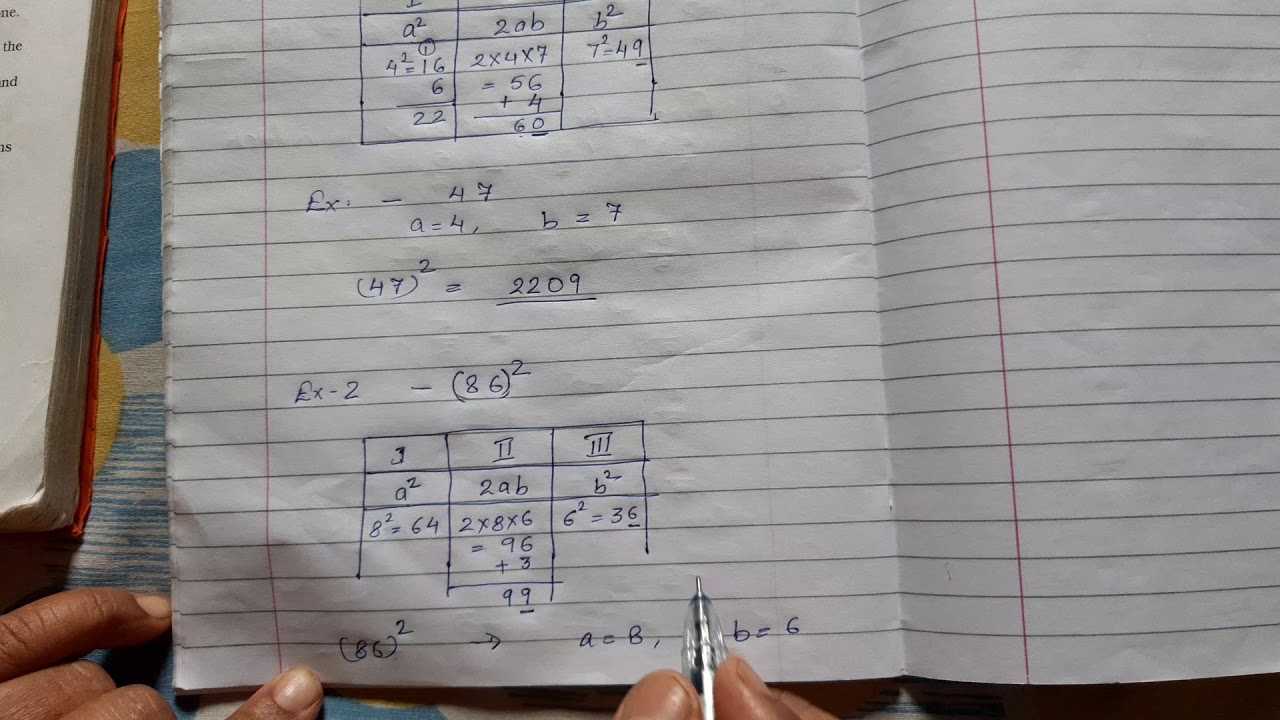 one.
the
and
ns
I
a² 2ab b²
4²=16 ① 2×4×7 7²=49
6 = 56
22 + 4
60
Ex. - 47
a=4, b = 7
(47)² = 2209
Ex-2 - (86)²
I II III
a² 2ab b²
8²=64 2×8×6 6²=36
= 96
+3
99
(86)² → a=8, b=6